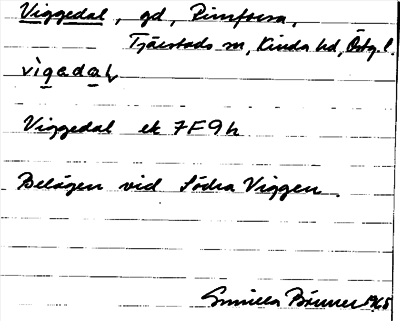 Viggedal, gd, Rimforsa,
Tjärstads sn, Kinda hd, Östg. l.
vìgedaḷ
Viggedal ek 7F9h
Belägen vid Södra Viggen.
Gunilla Börner 1965